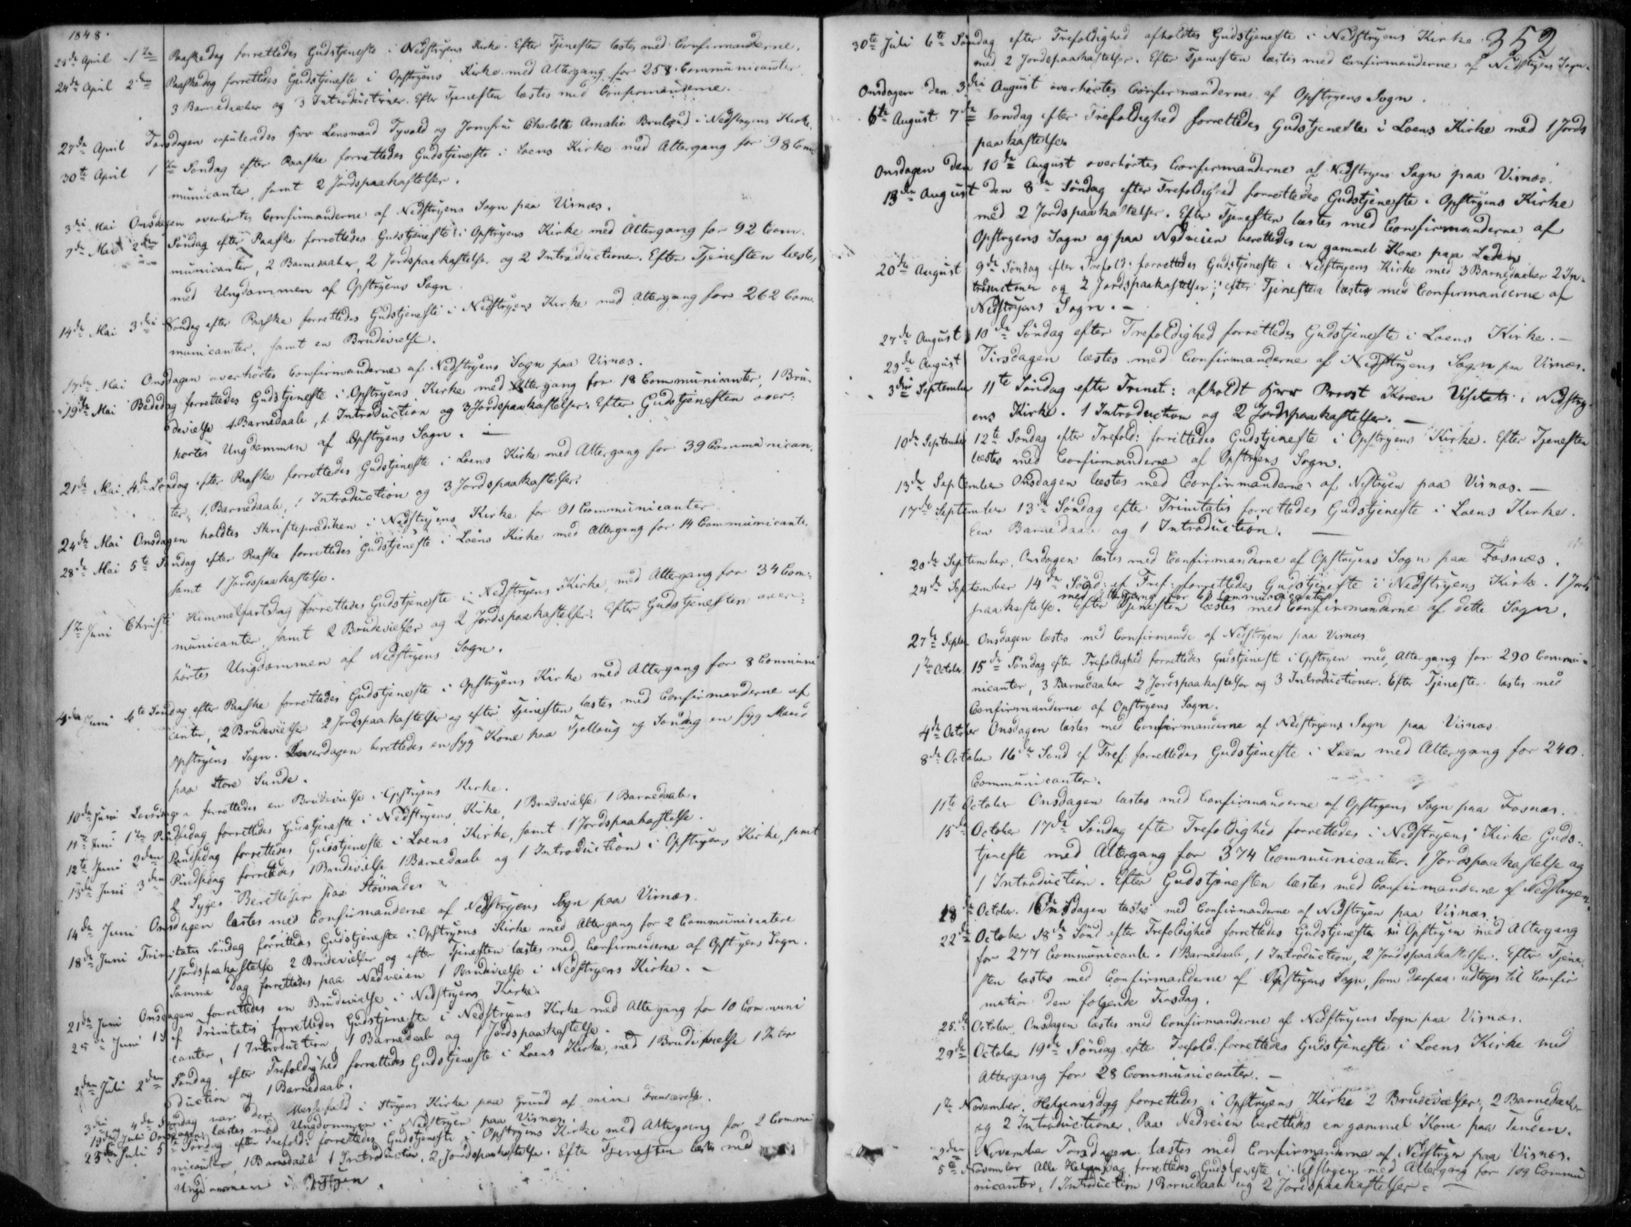 1848.
23de April 1ste Paaskedag forrettedes Gudstjeneste i Nedstryens Kirke. Efter Tjenesten læstes med Confirmanderne.
24de April 2den Paaskedag forrettedes Gudstjeneste i Opstryens Kirke med Altergang for 258 Communicanter
3 Barnedaaber og 3 Introductioner. Efter Tjenesten læstes med Confirmanderne.
27de April Torsdagen copuleredes Herr Lensmand Tyvold og Jomfru Charlotte Amalie i Nedstryens Kirke.
30te April 1ste Søndag efter Paaske forrettedes Gudstjeneste i Loens Kirke med Altergang for 98 Com-
municanter, samt 2 Jordspaakastelser.
3die Mai Onsdagen overhørtes Confirmanderne af Nedstryens Sogn paa Visnæs.
7de Mai 2den Søndag efter Paaske forrettedes Gudstjeneste i Opstryens Kirke med Altergang for 92 Com-
municanter, 2 Barnedaaber, 2 Jordspaakastelser og 2 Introductioner. Efter Tjenesten læstes
med Ungdommen af Opstryens Sogn.
14de Mai 3die Søndag efter Paaske forrettedes Gudstjeneste i Nedstryens Kirke med Altergang for 262 Com-
municanter, samt en Brudevielse.
17de Mai Onsdagen overhørtes Confirmanderne af Nedstryens Sogn paa Visnæs.
19de Mai Bededag forrettedes Gudstjeneste i Opstryens Kirke med Altergang for 18 Communicanter, 1 Bru-
devielse 1 Barnedaab, 1 Introduction og 3 Jordspaakastelser. Efter Gudstjenesten over-
hørtes Ungdommen af Opstryens Sogn. —
21de Mai 4de Søndag efter Paaske forrettedes Gudstjeneste i Loens Kirke med Altergang for 39 Communican-
ter, 1 Barnedaab, 1 Introduction og 3 Jordspaakastelser.
24de Mai Onsdagen holdtes Skriftepræediken i Nedstryens Kirke for 91 Communicanter
28de Mai 5te Søndag efter Paaske forrettedes Gudstjeneste i Loens Kirke med Altergang for 14 Communicanter
samt 1 Jordspaakastelse.
1ste Juni Christi Himmelfartsdag forrettedes Gudstjeneste i Nedstryens Kirke med Altergang for 34 Com-
municanter samt 2 Brudevielser og 2 Jordspaakastelser. Efter Gudstjenesten over-
hørtes Ungdommen af Nedstryens Sogn.
4de Juni 6te Søndag efter Paaske forrettedes Gudstjeneste i Opstryens Kirke med Altergang for 8 Communi-
canter, 2 Brudevielser 2 Jordspaakastelser og efter Tjenesten læstes med Confirmanderne af
Opstryens Sogn. Løverdagen berettedes en syg Kone paa Tjellaug og Søndag en syg Mand
paa Store Sunde.
10de Juni Løverdagen forrettedes en Brudevielse i Opstryens Kirke.
11te Juni 1ste Pindsedag forrettedes Gudstjeneste i Nedstryens Kirke, 1 Brudevielse 1 Barnedaab.
12te Juni 2den Pindsedag forrettedes Gudstjeneste i Loens Kirke, samt 1 Jordspaakastelse.
13de Juni 3die Pindsedag forrettedes 1 Brudevielse 1 Barnedaab og 1 Introduction i Opstryens Kirke, samt
2 Syge Berettelser paa
14de Juni Onsdagen læstes med Confirmanderne af Nedstryens Sogn paa Visnæs.
18de Juni Trinitatis Søndag forrettedes Gudstjeneste i Opstryens Kirke med Altergang for 2 Communicantere
1 Jordspaakastelse 2 Brudevielser og efter Tjenesten læstes med Confirmanderne af Opstryens Sogn.
Samme Dag forrettedes paa Nedveien 1 Brudevielse i Nedstryens Kirke. —
21de Juni Onsdagen forrettedes en Brudevielse i Nedstryens Kirke.
25de Juni 1 S. ef Trinitatis forrettedes Gudstjeneste i Nedstryens Kirke med Altergang for 10 Communi-
canter, 1 Introduction 1 Barnedaab og 1 Jordspaakastelse.
2den Juli 2den Søndag efter Trefoldighed forrettedes Gudstjeneste i Loens Kirke, med 1 Brudevielse 1 Intro-
duction og 1 Barnedaab.
3die og 4de Søndag var der Messefald i Stryens Kirke paa Grund af min Fraværelse.
19de Juli Onsdagen læstes med Ungdommen i Nedstryen paa Visnæs.
23de Juli 5te Søndag efter Trefold: forrettedes Gudstjeneste i Opstryens Kirke med Altergang for 2 Commu-
nicanter, 1 Barnedaab 1 Introduction, 2 Jordspaakastelser. Efter Tjenesten læstes med
Ungdommen i Opstryen.
352
30te Juli 6te Søndag efter Trefoldighed afholdtes Gudstjeneste i Nedstryens Kirke
med 2 Jordspaakastelser. Efter Tjenesten læstes med Confirmanderne af Nedstryens Sogn.
Onsdagen den 3die August overhørtes Confirmanderne af Opstryens Sogn.
6te August 7de Søndag efter Trefoldighed forrettedes Gudstjeneste i Loens Kirke med 1 Jords-
paakastelse.
Onsdagen den 10de August overhørtes Confirmanderne af Nedstryens Sogn paa Visnæs.
13de August den 8de Søndag efter Trefoldighed forrettedes Gudstjeneste i Opstryens Kirke
med 2 Jordspaakastelser. Efter Tjenesten læstes med Confirmanderne af
Opstryens Sogn og paa Nedveien berettedes en gammel Kone paa
20de August 9de Søndag efter Trefold: forrettedes Gudstjeneste i Nedstryens Kirke med 3 Barnedaaber 2 In-
troductioner og 2 Jordspaakastelser; efter Tjenesten læstes med Confirmanderne af
Nedstryens Sogn. —
27de August 10de Søndag efter Trefoldighed forrettedes Gudstjeneste i Loens Kirke. —
29de August Tirsdagen læstes med Confirmanderne af Nedstryens Sogn paa Visnæs.
3die September 11te Søndag efter Trinit: afholdt Herr Provst Koren Visitats i Nedstry-
ens Kirke. 1 Introduction og 2 Jordspaakastelser. —
10de September 12te Søndag efter Trefold: forrettedes Gudstjeneste i Opstryens Kirke. Efter Tjenesten
læstes med Confirmanderne af Opstryens Sogn.
13de September Onsdagen læstes med Confirmanderne af Nestryen paa Visnæs. —
17de September 13de Søndag efter Trinitatis forrettedes Gudstjeneste i Loens Kirke.
Een Barnedaab og 1 Introduction. —
20de September, Onsdagen læstes med Confirmanderne af Opstryens Sogn paa Fosnæs.
24de September 14de Sønd: ef Tref: forrettedes Gudstjeneste i Nedstryens Kirke. 1 Jords-
med Altergang for Communicanter
paakastelse. Efter Tjenesten læstes med Confirmanderne af dette Sogn.
27de Septbr Onsdagen læstes med Confirmande af Nedstryen paa Visnæs
1ste October 15de Søndag efter Trefoldighed forrettedes Gudstjeneste i Opstryen med Altergang for 290 Commu-
nicanter, 3 Barnedaaber 2 Jordspaakastelser og 3 Introductioner. Efter Tjeneste læstes med
Confirmanderne af Opstryens Sogn.
4de October Onsdagen læstes med Confirmanderne af Nedstryens Sogn paa Visnæs
8de October 16de Sønd ef Tref forrettedes Gudstjeneste i Loen med Altergang for 240
Communicanter.
11te October Onsdagen læstes med Confirmanderne af Opstryens Sogn paa Fosnæs.
15de October 17de Søndag efter Trefoldighed forrettedes i Nedstryens Kirke Guds-
tjeneste med Altergang for 374 Communicanter. 1 Jordspaakastelse og
1 Introduction. Efter Gudstjenesten læstes med Confirmanderne af Nedstryen.
18de October. Onsdagen læstes med Confirmanderne af Nedstryen paa Visnæs.
22de October 18de Sønd efter Trefoldighed forrettedes Gudstjeneste i Opstryen med Altergang
for 277 Communicante. 1 Barnedaab, 1 Introduction, 2 Jordspaakastelser. Efter Tjene-
sten læstes med Confirmanderne af Opstryens Sogn, som derpaa udtoges til Confir-
mation den følgende Tirsdag.
25de October, Onsdagen læstes med Confirmanderne af Nedstryens Sogn paa Visnæs.
29de October 19de Søndag efter Trefold. forrettedes Gudstjeneste i Loens Kirke med
Altergang for 28 Communicanter. —
1ste November. Helgensdag forrettedes i Opstryens Kirke 2 Brudevielser, 2 Barnedaaber
og 2 Introductione. Paa Nedveien berettedes en gammel Kone paa
2den November Torsdagen læstes med Confirmanderne af Nedstryn paa Visnæs.
5te November Alle Helgensdag forrettedes Gudstjeneste i Nedstryen med Altergang for 109 Commu-
nicanter, 1 Introduction 1 Barnedaab og 2 Jordspaakastelser. —